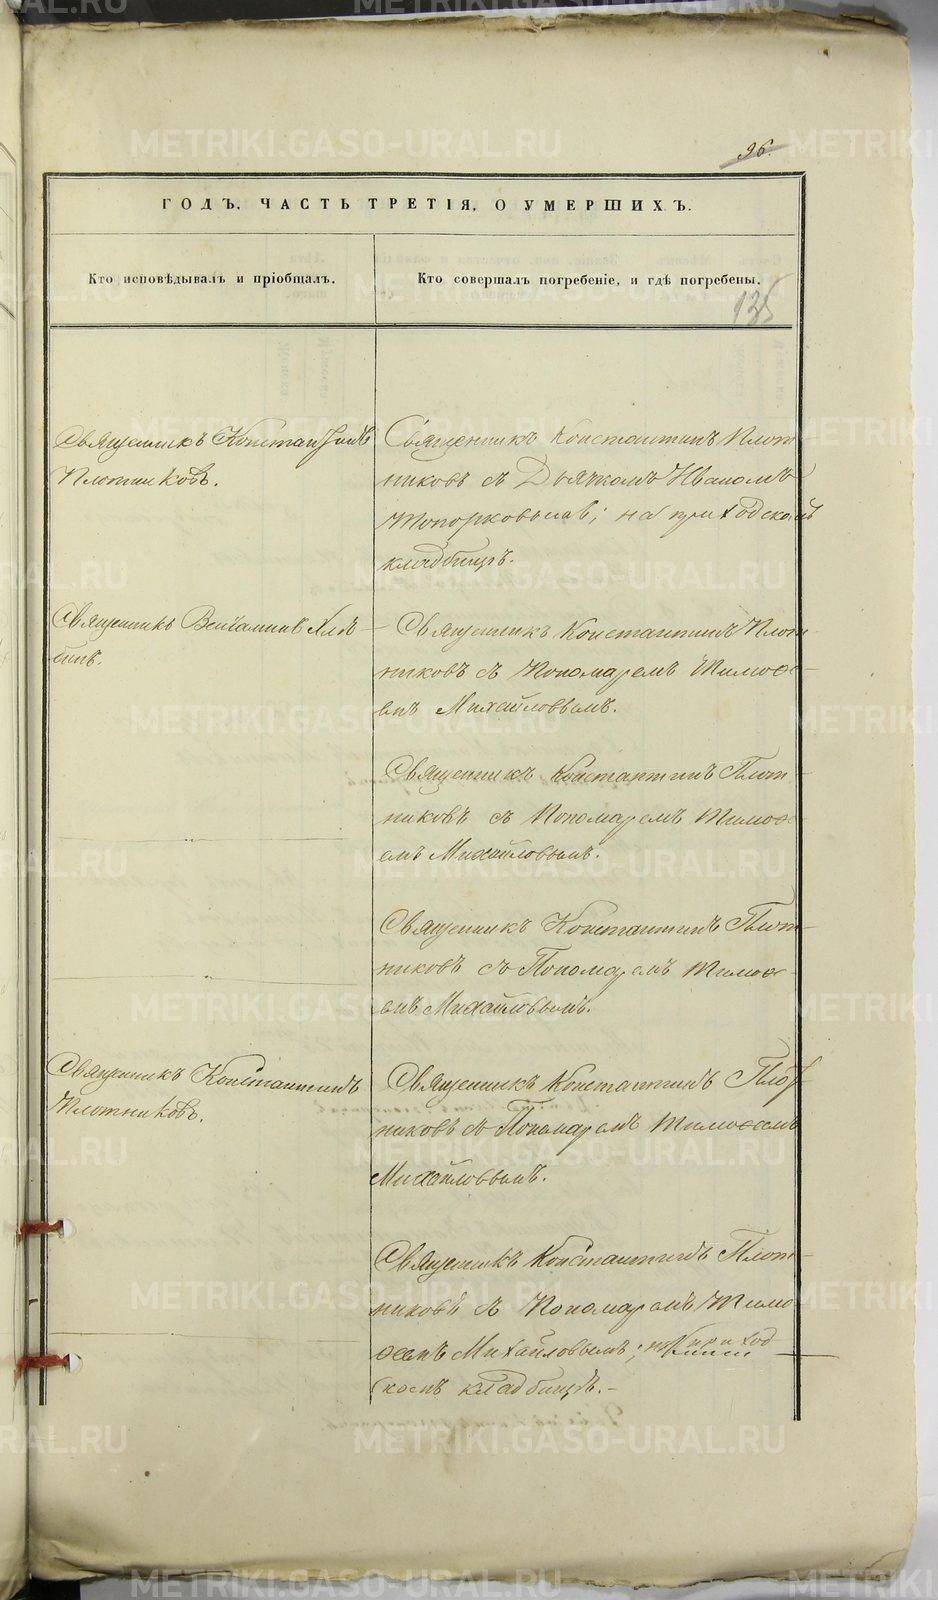 96.
ГОДЪ, ЧАСТЬ ТРЕТІЯ, О УМЕРШИХЪ.
Кто исповѣдывалъ и пріобщалъ.
Кто совершалъ погребеніе, и гдѣ погребены.
135
Священникъ Константинъ
Плотниковъ.
Священникъ Константинъ Плот
никовъ съ Дьячкомъ Иваномъ
Топорковымъ; на приходскомъ
кладбищѣ.
Священникъ Веніаминъ
Священникъ Константинъ Плот-
никовъ съ Пономаремъ Тимоѳе-
емъ Михайловымъ.
Священникъ Константинъ Плот-
никовъ съ Пономаремъ Тимоѳе
емъ Михайловымъ.
Священникъ Константинъ Плот-
никовъ съ Пономаремъ Тимоѳе-
емъ Михайловымъ.
Священникъ Константинъ
Плотниковъ.
Священникъ Константинъ Плот
никовъ съ Пономаремъ Тимоѳеемъ
Михайловымъ.
Священникъ Константинъ Плот-
никовъ съ Пономаремъ Тимо
ѳеемъ Михайловымъ; на приход
скомъ кладбищѣ.-
METRIKI.GASO-URAL.RU